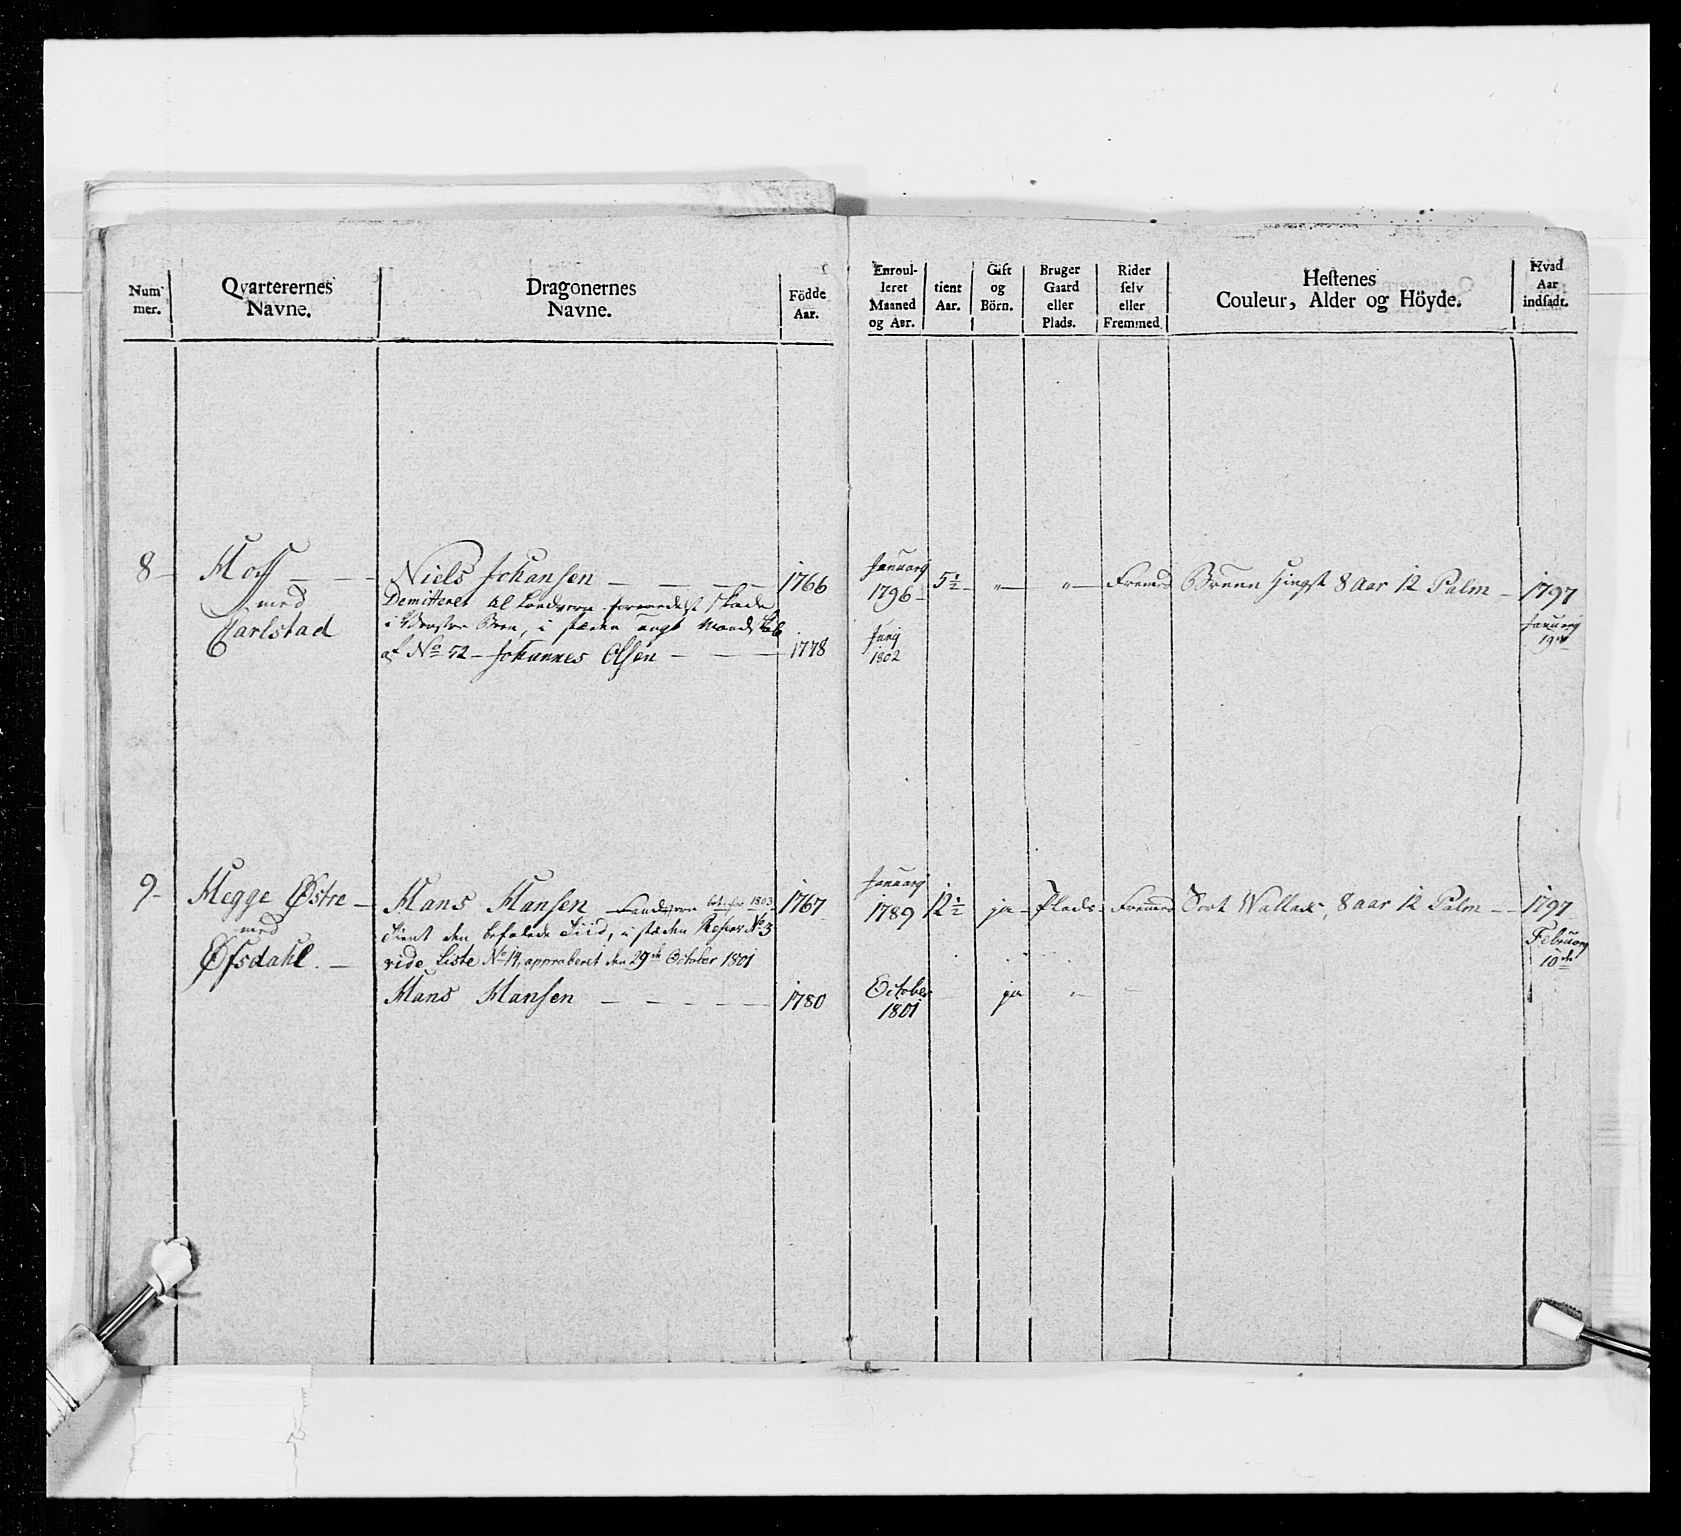 Num-
mer.
Qvarterernes
Navne.
Dragonernes
Navne.
Födde
Aar.
Enroul-
leret
Maaned
og Aar.
tient
Aar.
Gift
og
Börn.
Bruger
Gaard
eller
Plads.
Rider
selv
eller
Fremmed
Hestenes
Couleur, Alder og Höyde.
Hvad
Aar
indsadt.
8 -
Hoff - - -
med
Carlstad
Niels Johansen - - - -
Demitteret til Landværn formedelst Skade
i Venstre Been, i stæden ungt Mandskab
af No 52 - Johannes Olsen - - -
1766
1778
Januarij
1796 -
Junij
1802
5 1/2 -
" -
" -
Fremed
Bruun Hingst 8 Aar 12 Palm -
1797
Januarij
19de
9 -
Hegge Østre -
med
Øfsdahl. -
Hans Hansen - Landværn 1803
tient den befalede Tiid, i stæden Reserv No 3
vide Liste No 14, approberet den 29de October 1801
Hans Hansen - - - - -
1767
1780
Januarij
1789
October
1801
12 1/2
ja -
ja
Plads
" -
Fremed
Sort Wallak, 8 aar 12 Palm - -
1797
Februarij
10de